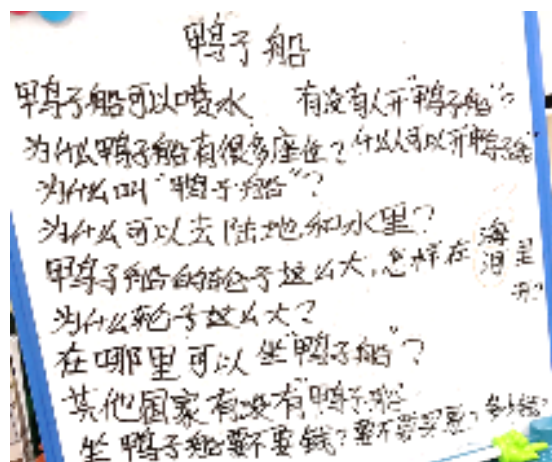 鸭子船
鸭子船可以喷水 有没有人开“鸭子船”?
为什么鸭子船有很多座位?什么人可以开鸭子船
为什么叫“鸭子船”?
为什么可以去陆地和水里?
鸭子船的轮子这么大,怎样在海里
为什么轮子这么大?
在哪里可以坐“鸭子船”?
其他国家有没有“鸭子船
坐鸭子船要不要钱?要不要买票?多少钱?